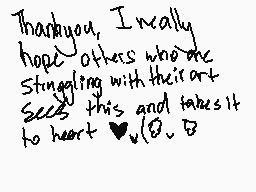 Thankyou, I really
hope others who are
struggling with their art
sees this and takes it
to heart ♥